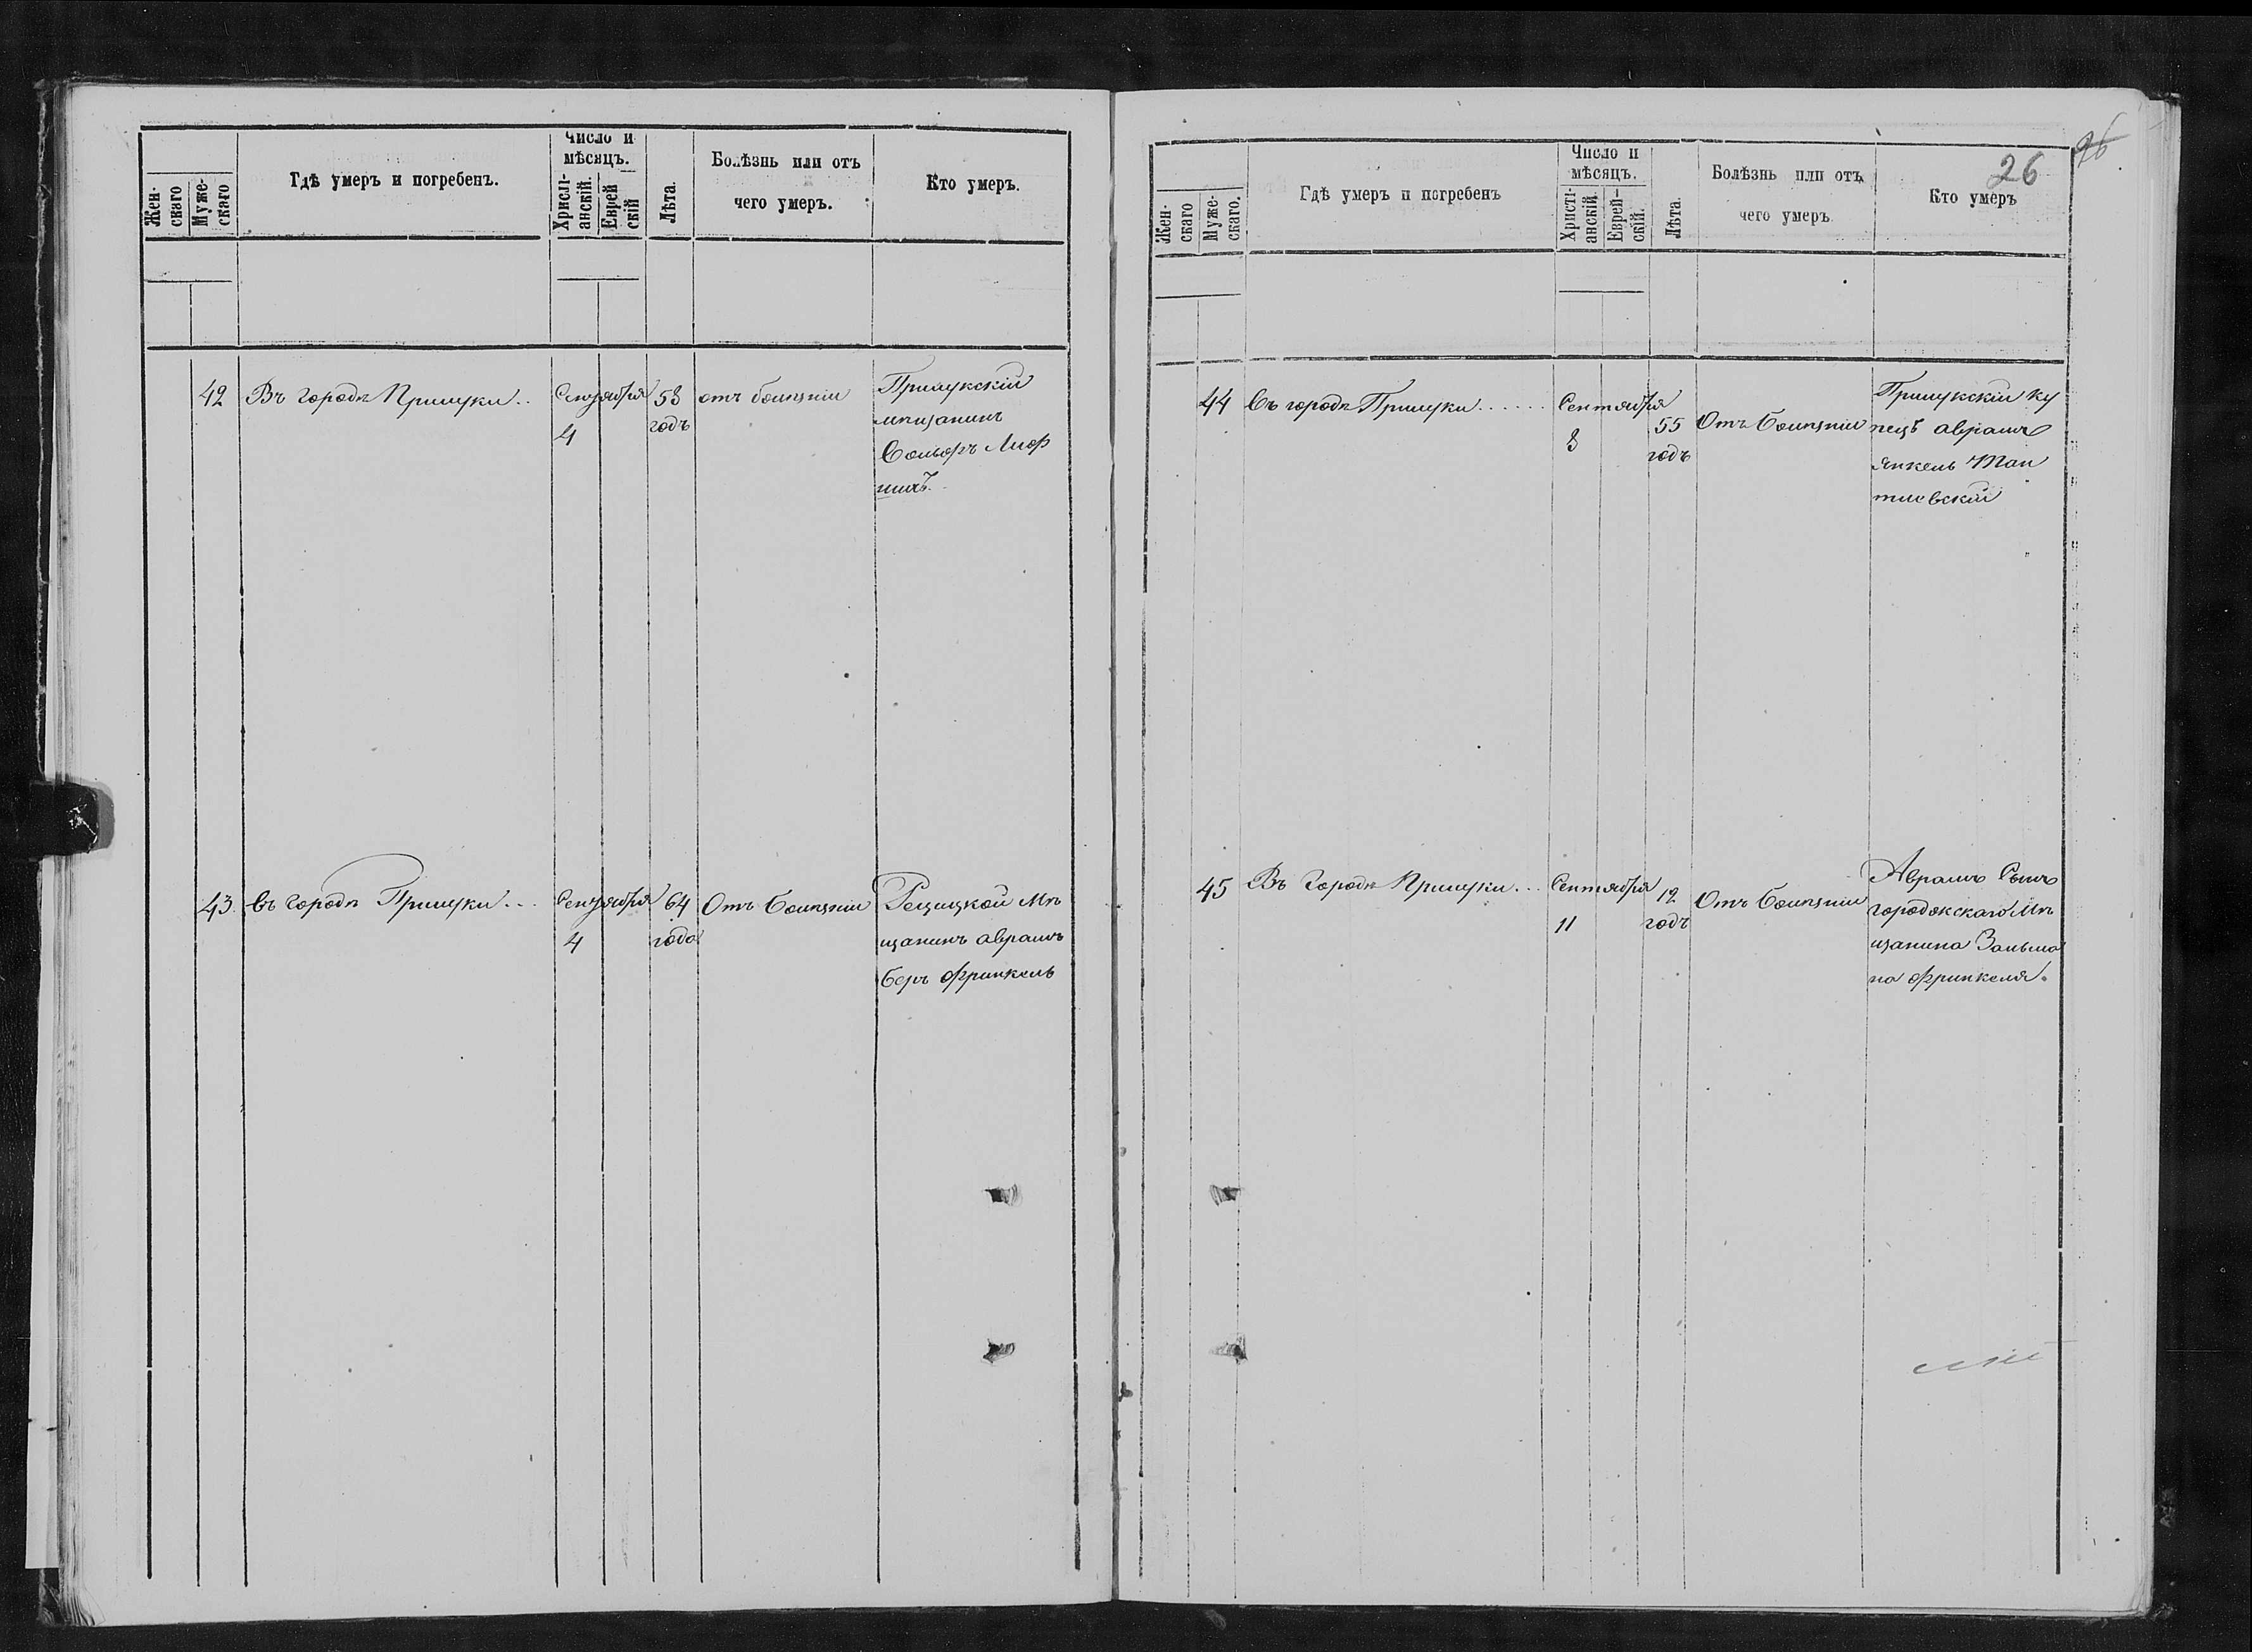 Жен-
скаго
Муже-
скаго
Гдѣ умеръ и погребенъ.
Число и
мѣсяцъ.
Христі-
анскій.
Еврей
скій
Лѣта.
Болѣзнь или отъ
чего умеръ.
Кто умеръ.
42
Въ городѣ Прилуки..
Сентября
4
58
годъ
отъ болѣзни
Прилукскій
мѣщанинъ
43
въ городѣ Прилуки...
Сентября
4
64
года
Отъ болѣзни
Рѣчицкой мѣ
щанинъ аврамъ
беръ Фринкель
26
Жен-
скаго
Муже-
скаго.
Гдѣ умеръ и погребенъ
Число и
мѣсяцъ.
Христі-
анскій.
Еврей-
скій.
Лѣта.
Болѣзнь или отъ
чего умеръ
Кто умеръ
44
въ городѣ Прилуки......
Сентября
8
55
годъ
Отъ болѣзни
Прилукскій ку
пецъ аврамъ
янкель
45
Въ городѣ Прилуки...
Сентября
11
12
годъ
Отъ болѣзни
Аврамъ Сынъ
городокскаго мѣ
щанина Зальма
на Фринкеля.